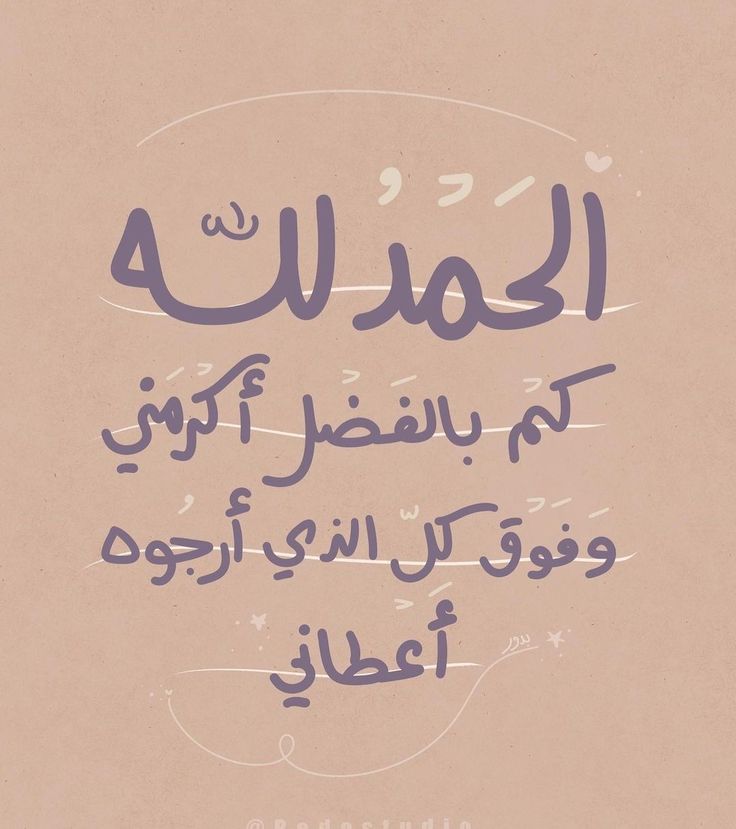 الحَمْدُ للّه
كمْ بالفَضْل أكرْمَني
وَفَوْق كلّ الذي أرجُوه
أَعْطاني
بدور